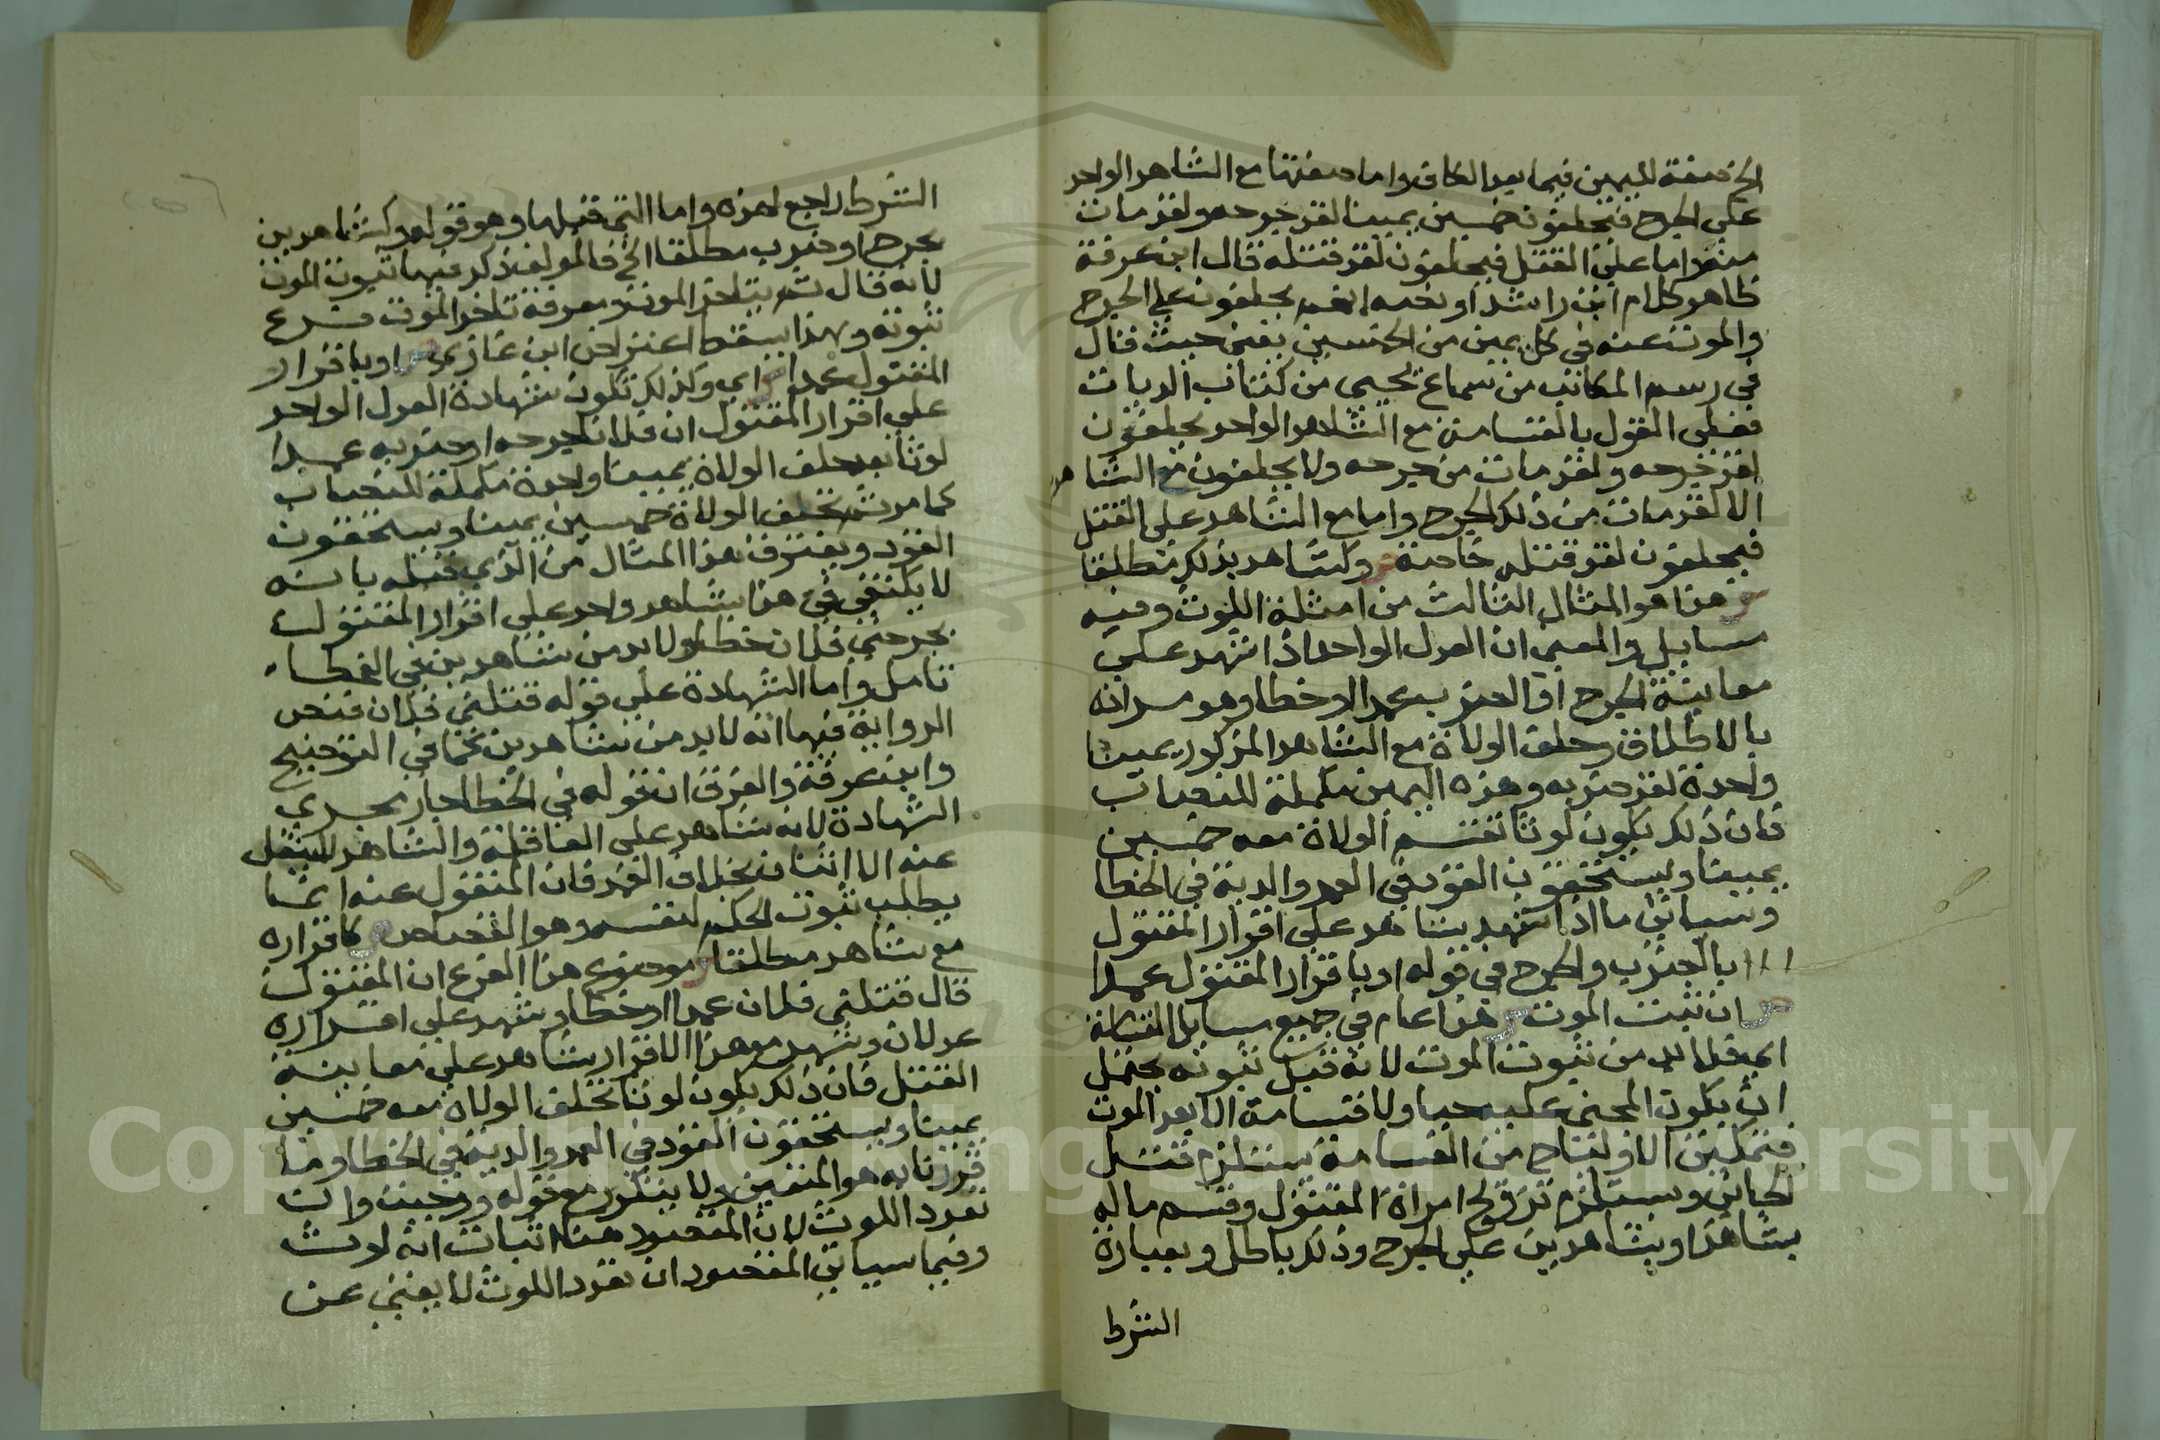 الخ صفة لليمين فيما بعد الكاف واما صفتها مع الشاهد الواحد
على الجرح فيحلفون خمسين يمينا لقد جرحه ولقد مات
منه واما على القتل فيحلفون لقد قتله قال ابن عرفة
ظاهر كلام ابن راشد او نصه انهم يحلفون على الجرح
والموت عنه في كل يمين من الخمسين يعني حيث قال
في رسم المكاتب من سماع يحيى من كتاب الديات
فعلى القول بالقسامة مع الشاهد الواحد يحلفون
لقد جرحه ولقد مات من جرحه ولا يحلفون مع الشاهد
الا لقد مات من ذلك الجرح واما مع الشاهد على القتل
فيحلفون لقد قتله خاصة ص وكشاهد بذلك مطلقا
ش هذا هو المثال الثالث من امثلة اللوث وفيه
مسايل والمعنى ان العدل الواحد اذا شهد على
معاينة الجرح او الضرب عمدا او خطا وهو مراده
بالاطلاق وحلف الولاة مع الشاهد المذكور يمينا
واحدة لقد ضربه وهذه اليمين مكملة للنصاب
فان ذلك يكون لوثا تقسم الولاة معه خمسين
يمينا ويستحقون القود في العمد والدية في الخطا
وسياتي ما اذا شهد شاهد على اقرار المقتول
بالضرب والجرح في قوله او باقرار المقتول عمدا
ص ان ثبت الموت ش هذا عام في جميع مسايل القسامة
اي فلا بد من ثبوت الموت لانه قبل ثبوته يحتمل
ان يكون المجني عليه حيا ولا قسامة الا بعد الموت
فتمكين الاولياء من القسامة يستلزم قتل
الجاني ويستلزم تزويج امراة المقتول وقسم ماله
بشاهد او بشاهدين على الجرح وذلك باطل وبعبارة
الشرط
الشرط راجع لهذه واما التي قبلها وهو قوله او كشاهدين
بجرح او ضرب مطلقا الخ فالمولف ذكر فيها ثبوت الموت
لانه قال ثم يتاخر الموت ومعرفة تاخر الموت فرع
ثبوته وبهذا يسقط اعتراض ابن غازي ص او باقرار
المقتول عمدا ش اي وكذلك تكون شهادة العدل الواحد
على اقرار المقتول ان فلانا جرحه او ضربه عمدا
لوثا بعد حلف الولاة يمينا واحدة مكملة للنصاب
كما مر ثم تحلف الولاة خمسين يمينا ويستحقون
القود ويفترق هذا المثال من الذي قبله بانه
لا يكتفى في هذا بشاهد واحد على اقرار المقتول
بجرحني فلان خطا ولا بد من شاهدين في الخطا
تامل واما الشهادة على قوله قتلني فلان فنص
الرواية فيها انه لا بد من شاهدين كما في التوضيح
وابن عرفة والفرق ان قوله في الخطا جار مجرى
الشهادة لانه شاهد على العاقلة والشاهد لا ينقل
عنه الا اثنان بخلاف العمد فان المنقول عنه انما
يطلب ثبوت الحكم لنفسه وهو القصاص ص كاقراره
مع شاهد مطلقا ش موضوع هذا الفرع ان المقتول
قال قتلني فلان عمدا او خطا وشهد على اقراره
عدلان وشهد مع هذا الاقرار شاهد على معاينة
القتل فان ذلك يكون لوثا تحلف الولاة معه خمسين
يمينا ويستحقون القود في العمد والدية في الخطا وما
قررنا به هو المتعين ولا يتكرر مع قوله ووجبت وان
تعدد اللوث لان المقصود هنا اثبات انه لوث
وفيما سياتي المقصود ان تعدد اللوث لا يغني عن
Copyright © King Saud University